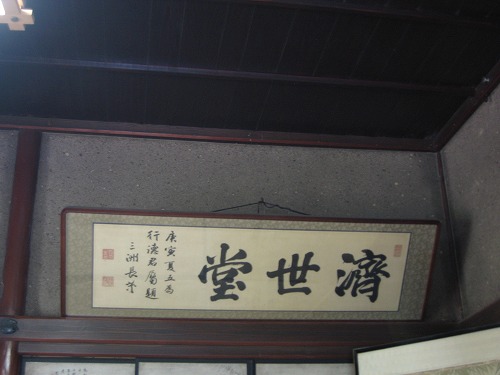 濟世堂
庚寅夏五為
行德君屬題
三洲長芠